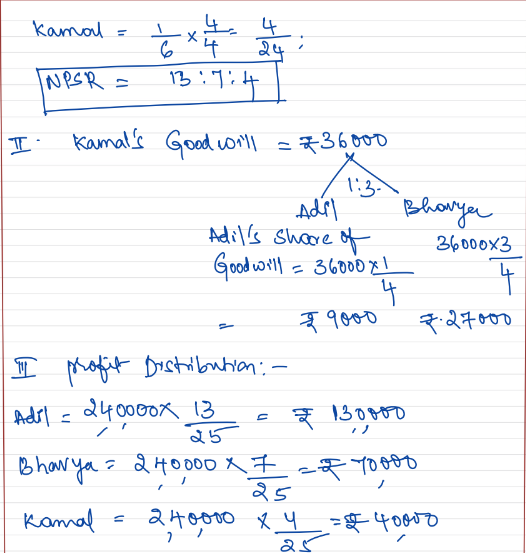 Kamal = 1/6 × 4/4 = 4/24 ;
NPSR = 13 : 7 : 4
II. Kamal's Goodwill = ₹36000
1:3.
Adil Bhavya
Adil's Share of 36000×3/4
Goodwill = 36000×1/4
= ₹9000 ₹.27000
III Profit Distribution:-
Adil = 240000× 13/25 = ₹ 130000
Bhavya = 240000 × 7/25 = ₹ 70000
Kamal = 240000 × 4/25 = ₹ 40000